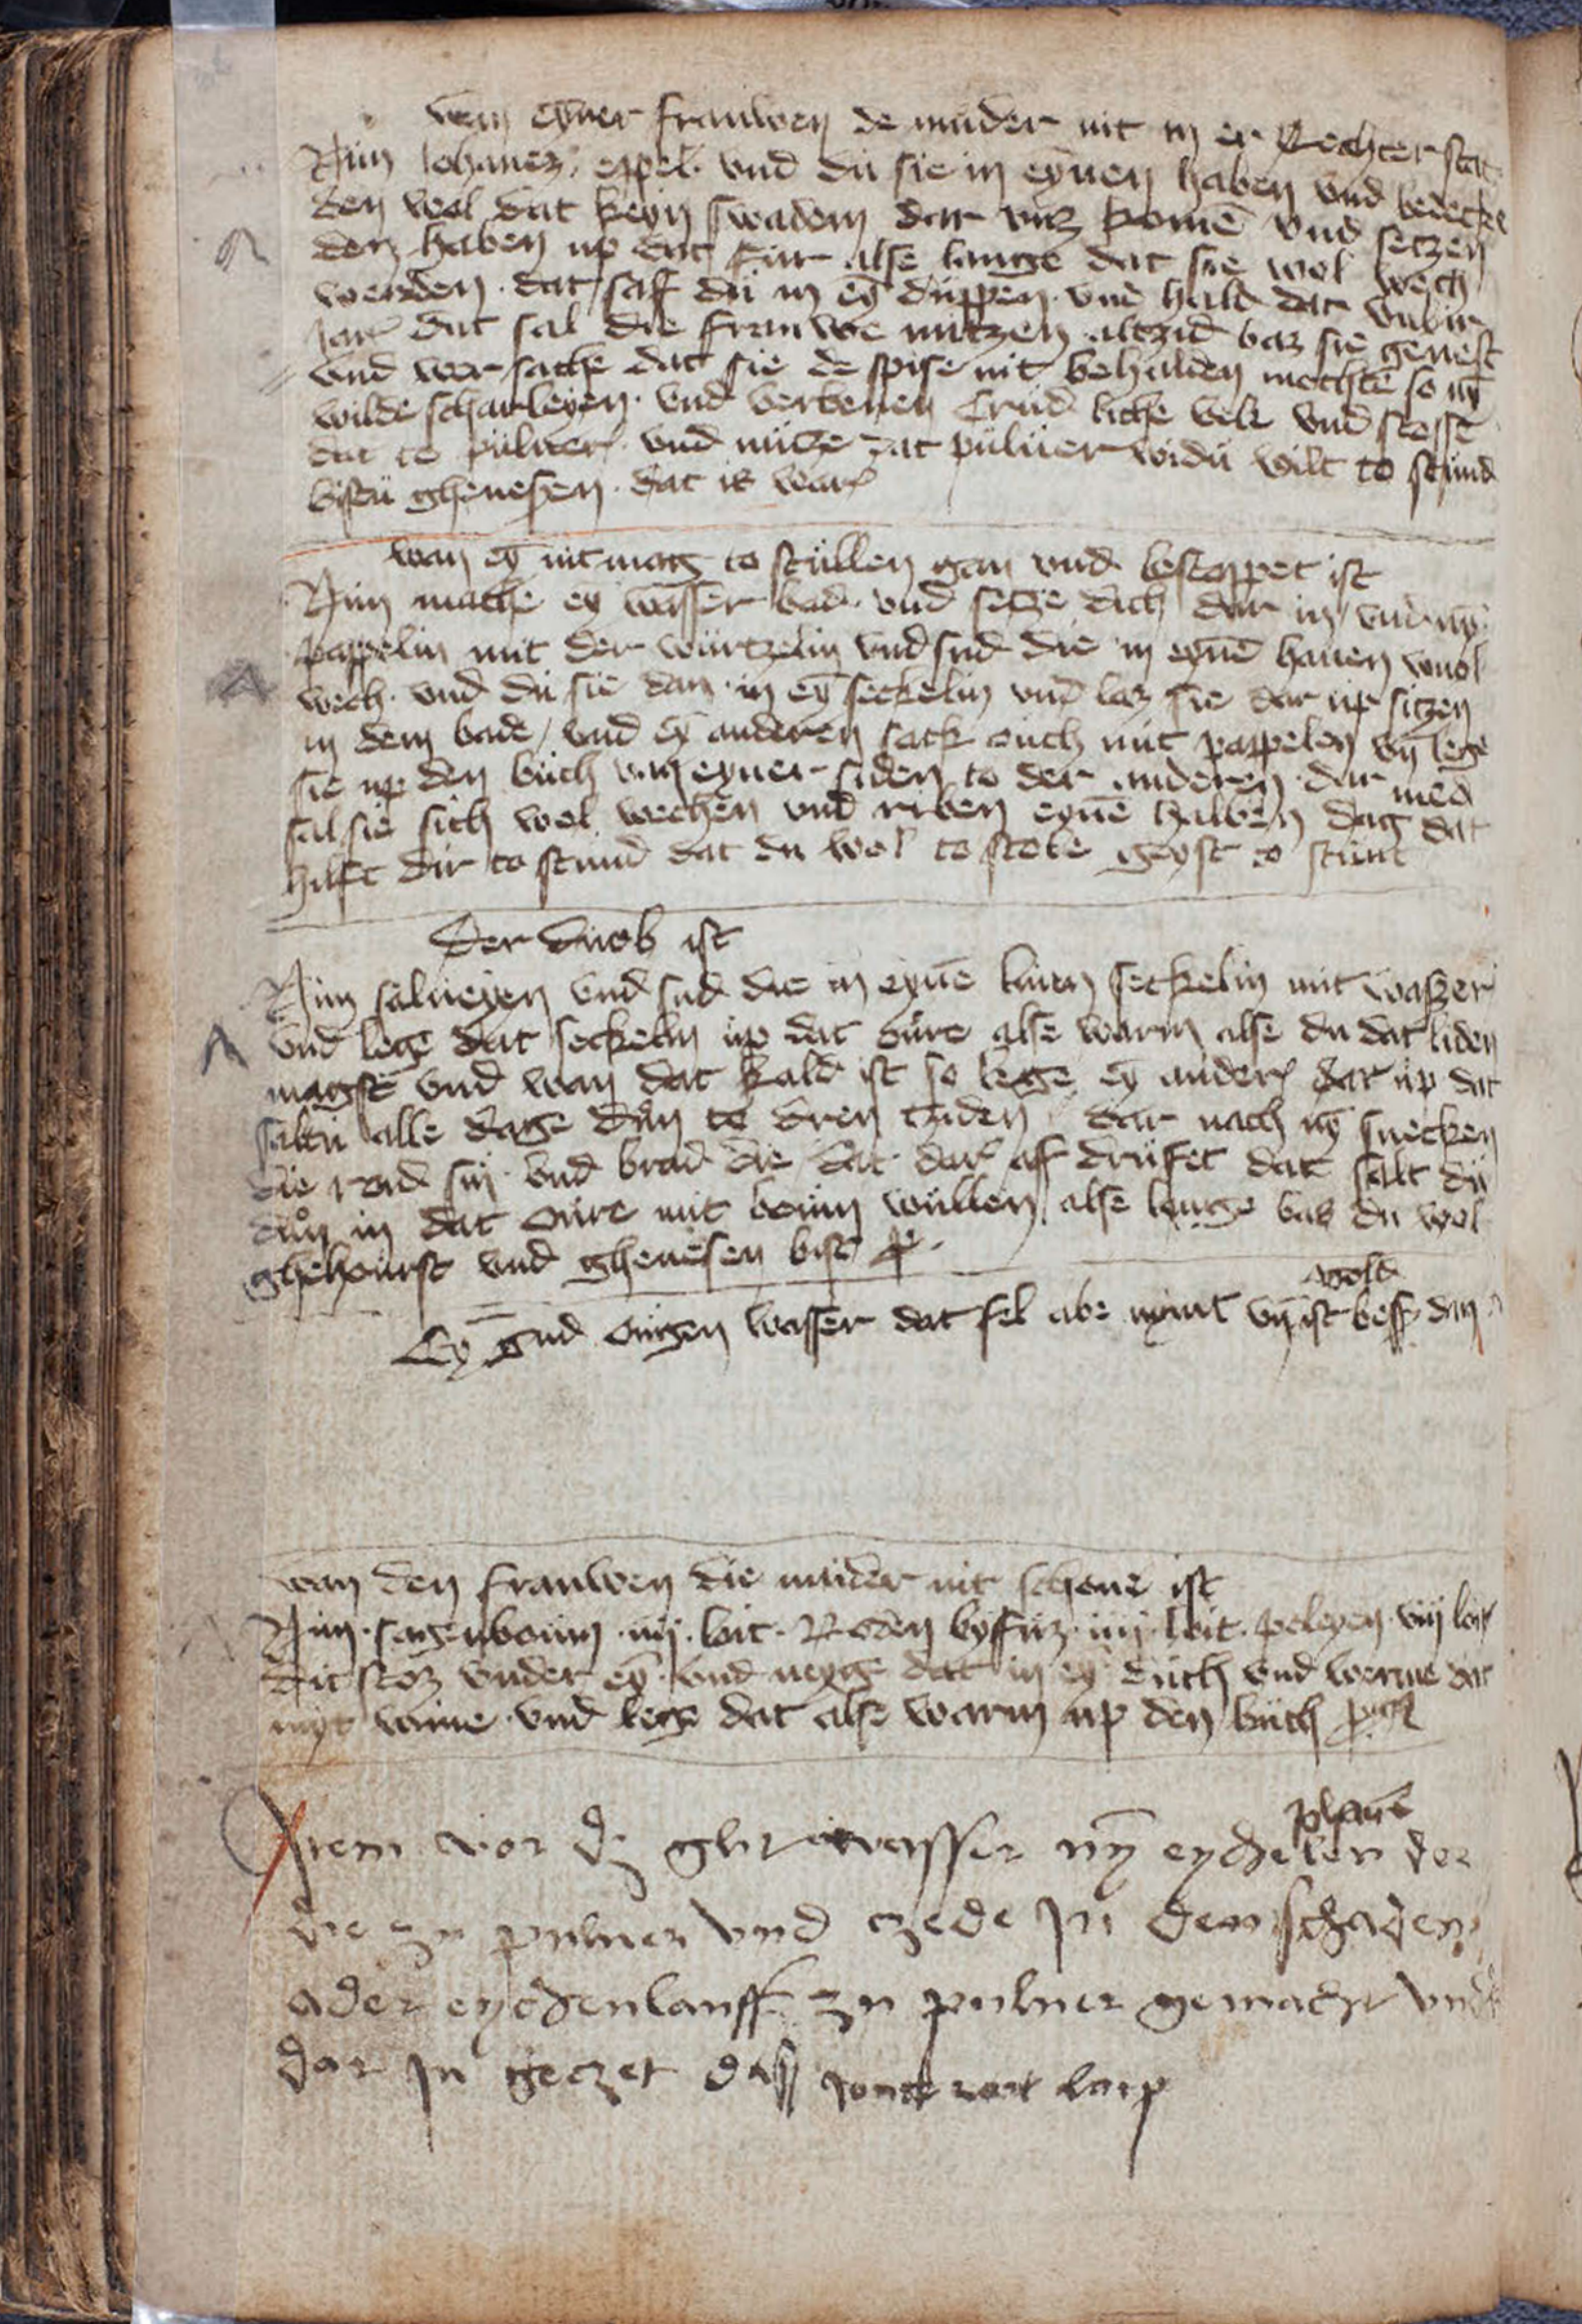 wan eyner frauwen de muder nit in er Rechter stat
Nim Johanez eppel vnd du sie in eynen haben vnd bedecke
den wol dat keyn swadem dar vuz komē vnd setzen
den haben up dat fur alse lange dat sie wol wech
werden dat saf du in eȳ duppen vnd hald dat
jar dat sal die frauwe nutzen altzid baz sie genest
vnd wer sache dat sie de spise nit behalden mochte so nȳ
wilde scharleyen vnd verbenen crud liche velt vnd stosse
dat to puluer vnd nutze dat puluer widu wilt to stund
bistu ghenesen dat is war
wan eȳ nit mag to stullen gan vnd bestoppet ist
Nim mache eȳ wasser bad vnd setze dich dar in vnd nȳ
pappelin mit der wurtzelin vnd sud die in eynē hauen wuol
wech vnd du sie dan in eȳ seckelin vnd laz sie dar up sitzen
in dem bade vnd eȳ anderen sack ouch mit pappelen vn̄ lege
sie up den buch van eyner siden to der anderen dar med
sal sie sich wol wechen vnd riben eynē halben dag dat
hilft dir to stund dat du wol to stole geyst to stunt
Der duob ist
Nim salueyen vnd sud die in eynē linen seckelin mit waszer
vnd lege dat seckelin up dat oure alse warm alse du dat liden
magst vnd wan dat kald ist so lege eȳ ander dar up dat
saltu alle dage dun to dren tziden dar nach nȳ snecken
die rod sin vnd brad die dat dar aff drufet dat salt du
duon in dat oure mit boum wullen alse lange bas du wol
ghehourst vnd ghenesen bist
wold
Eȳ gud ougen wasser dat fel abe nymt vn̄ ist bess dan
wan den frauwen die muder nit schone ist
Nim sagenboum iiij loit Roden byfuz iiij loit poleyen viij loit
dit stoz vnder eȳ vnd neyge dat in eȳ duch vnd werme dat
myt wine vnd lege dat alse warm up den buch
planē
Item vor dz glitwasser nȳ eychelen der
die zu puluer vnd czede in den schaden
ader eychenlauff zu puluer gemacht vnd
dar in geczet dass